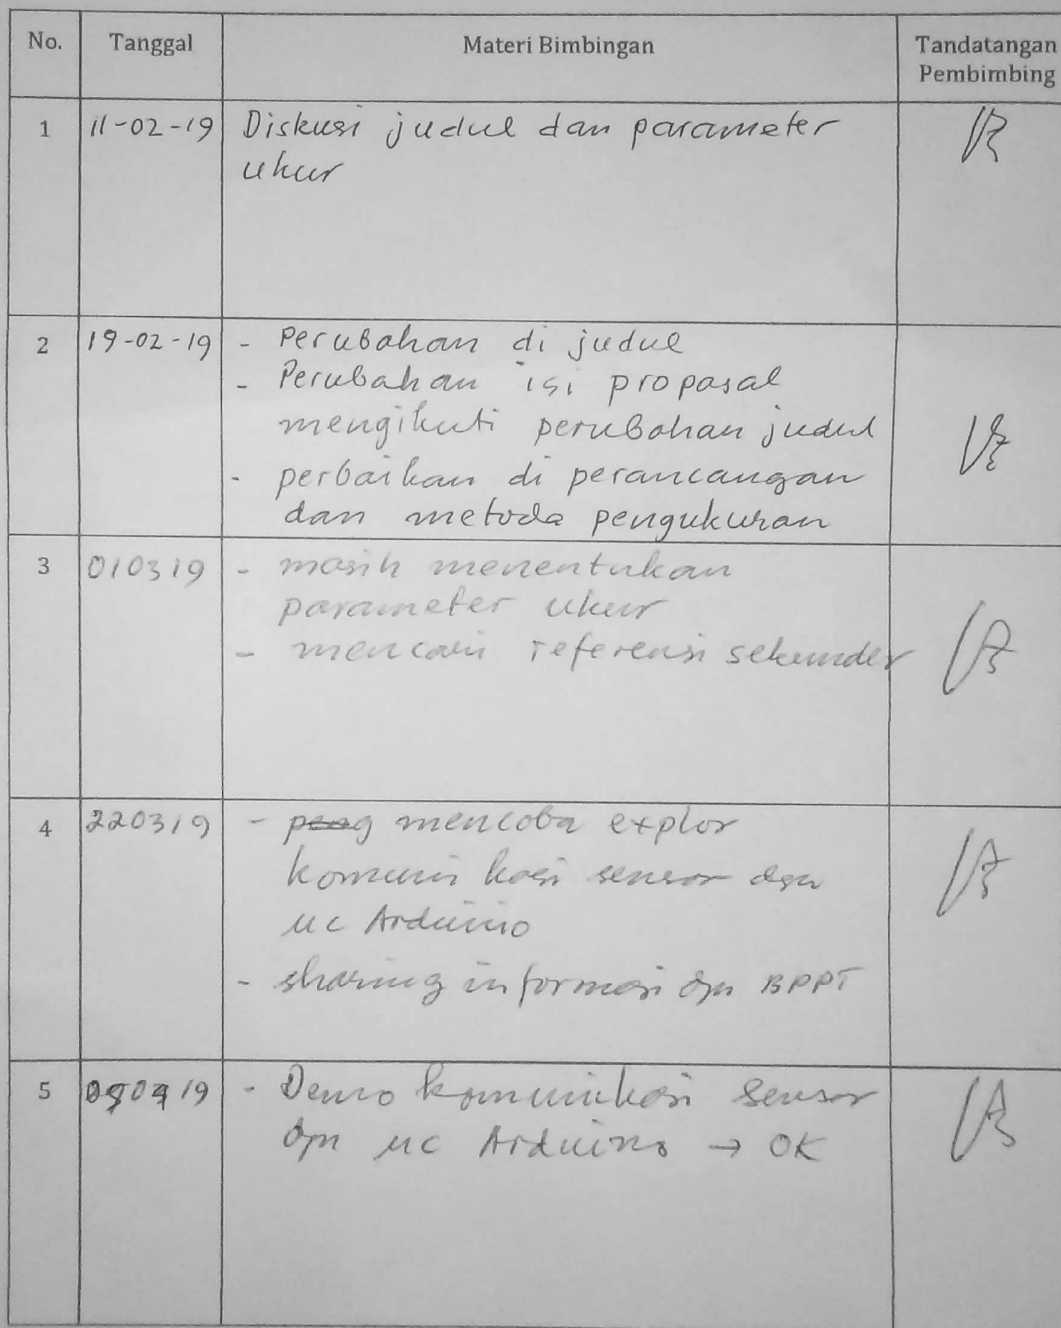 No. Tanggal Materi Bimbingan Tandatangan
Pembimbing
1 11-02-19 Diskusi judul dan parameter
ukur
2 19-02-19 - Perubahan di judul
- Perubahan isi proposal
mengikuti perubahan judul
- perbaikan di perancangan
dan metoda pengukuran
3 010319 - masih menentukan
parameter ukur
- mencari referensi sekunder
4 220319 - mencoba explor
komunikasi sensor dgn
uc Arduino
- sharing informasi dgn BPPT
5 - Demo komunikasi sensor
dgn uc Arduino → OK